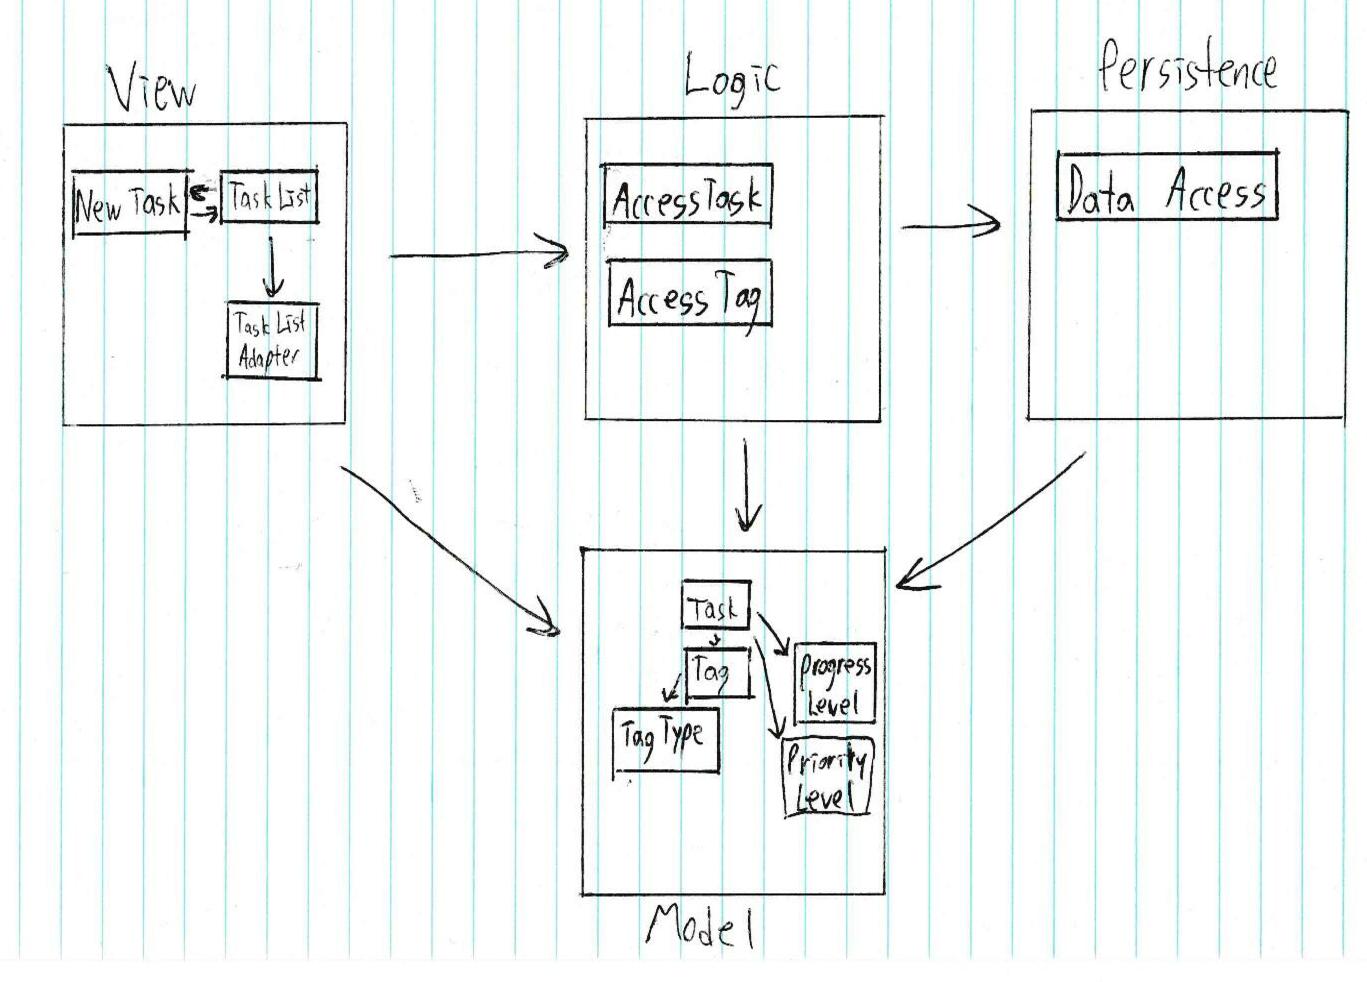 View
New Task
Task List
Task List
Adapter
Logic
AccessTask
Access Tag
Persistence
Data Access
Task
Tag
Tag Type
Progress
Level
Priority
Level
Model